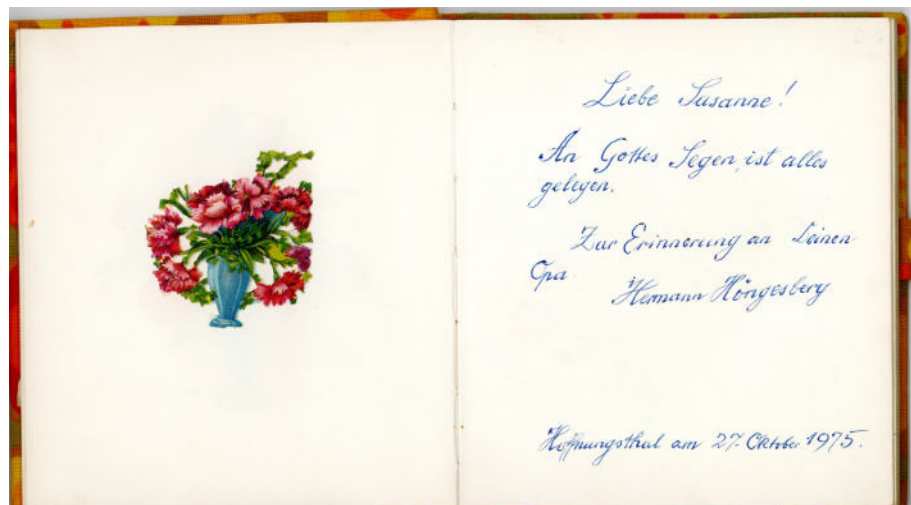 Liebe Susanne!
An Gottes Segen, ist alles
gelegen.
Zur Erinnerung an Deinen
Opa
Hermann Höngesberg
Hoffnungsthal am 27. Oktober 1975.